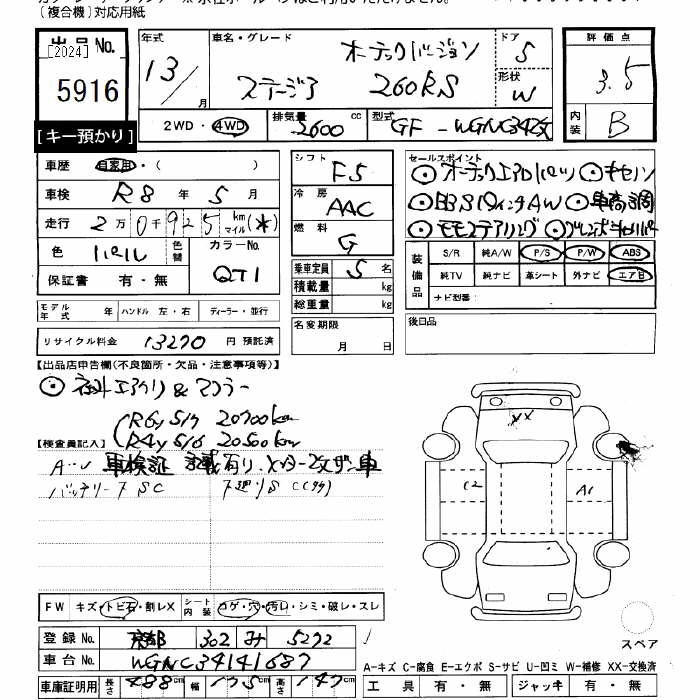 (複合機)対応用紙
出品No.
[2024]
5916
【キー預かり】
年式
13/
月
車名・グレード
オーテックバージョン
ステージア 260RS
ドア
5
形状
W
評価点
3.5
内装
B
2WD・4WD
排気量
2600
cc
型式
GF-WGNC34改
車歴
自家用・( )
車検
R8 年 5 月
走行
2万0千925
km
マイル
(*)
色
パール
色替
カラーNo.
QT1
保証書 有・無
シフト
F5
冷房
AAC
燃料
G
乗車定員
5
名
積載量
kg
総重量
kg
セールスポイント
装備品
S/R 純A/W P/S P/W ABS
純TV 純ナビ 革シート 外ナビ エアB
ナビ型番:
モデル年式 年 ハンドル 左・右 ディーラー・並行
リサイクル料金 13270 円 預託済
名変期限
月 日
後日品
【出品店申告欄(不良箇所・欠品・注意事項等)】
社外エアクリ & マフラー
R6y 5/7 20700km
R4y 5/6 20500km
【検査員記入】
車検証 記載有り.メーター改ザン車
バッテリー
XX
C2
A1
FW キズ・トビ石・割レX シート内装 コゲ・穴・汚レ・シミ・破レ・スレ
登録No. 京都 302 み 5272
車台No. WGNC34141687
車庫証明用 長さ 488 cm 幅 175 cm 高さ 147 cm
スペア
A-キズ C-腐食 E-エクボ S-サビ U-凹ミ W-補修 XX-交換済
工具 有・無 ジャッキ 有・無